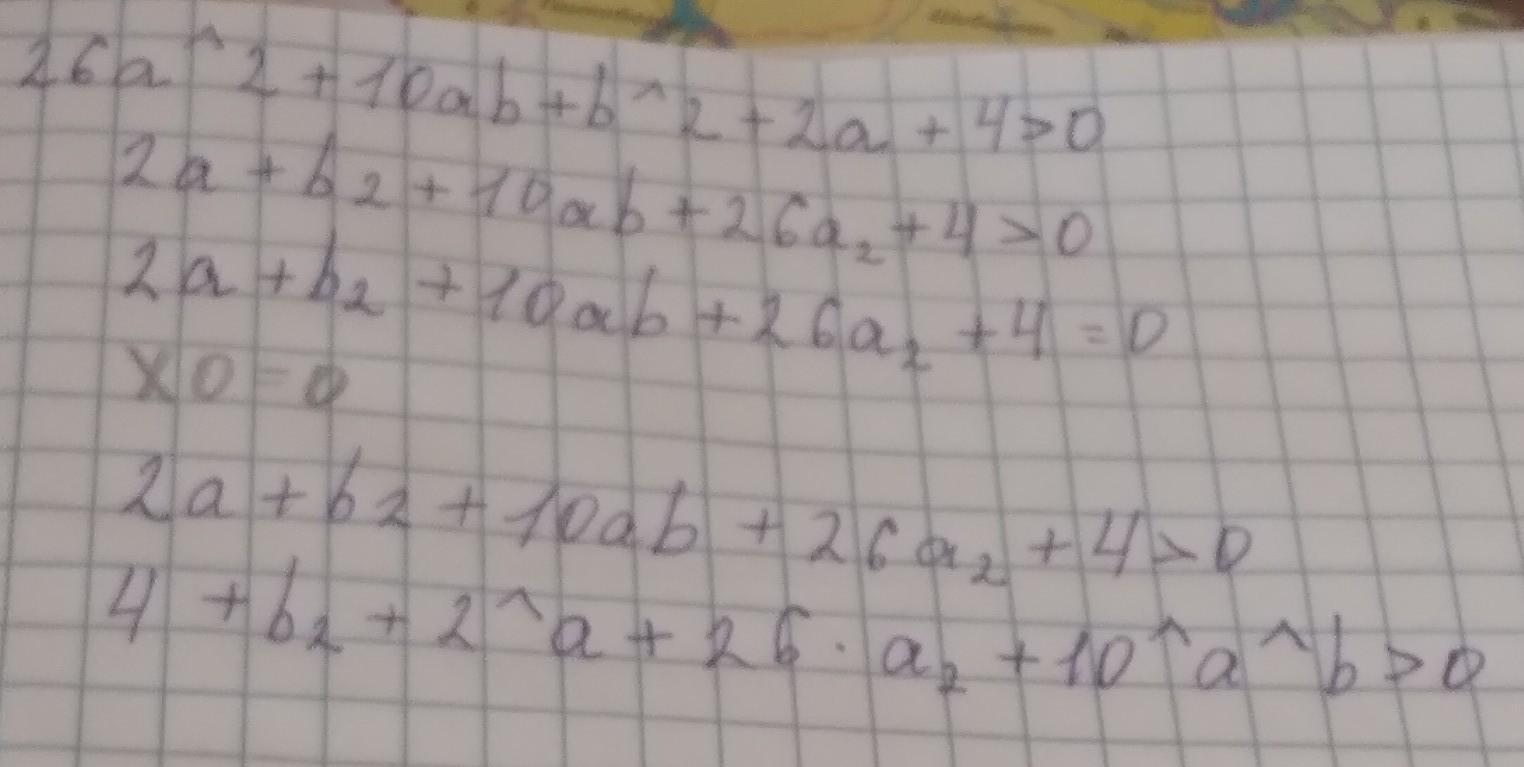 26a^2+10ab+b^2+2a+4>0
2a+b2+10ab+26a₂+4>0
2a+b₂+10ab+26a₂+4=0
x0=0
2a+b2+10ab+26a₂+4>0
4+b₂+2^a+26·a₂+10^a^b>0